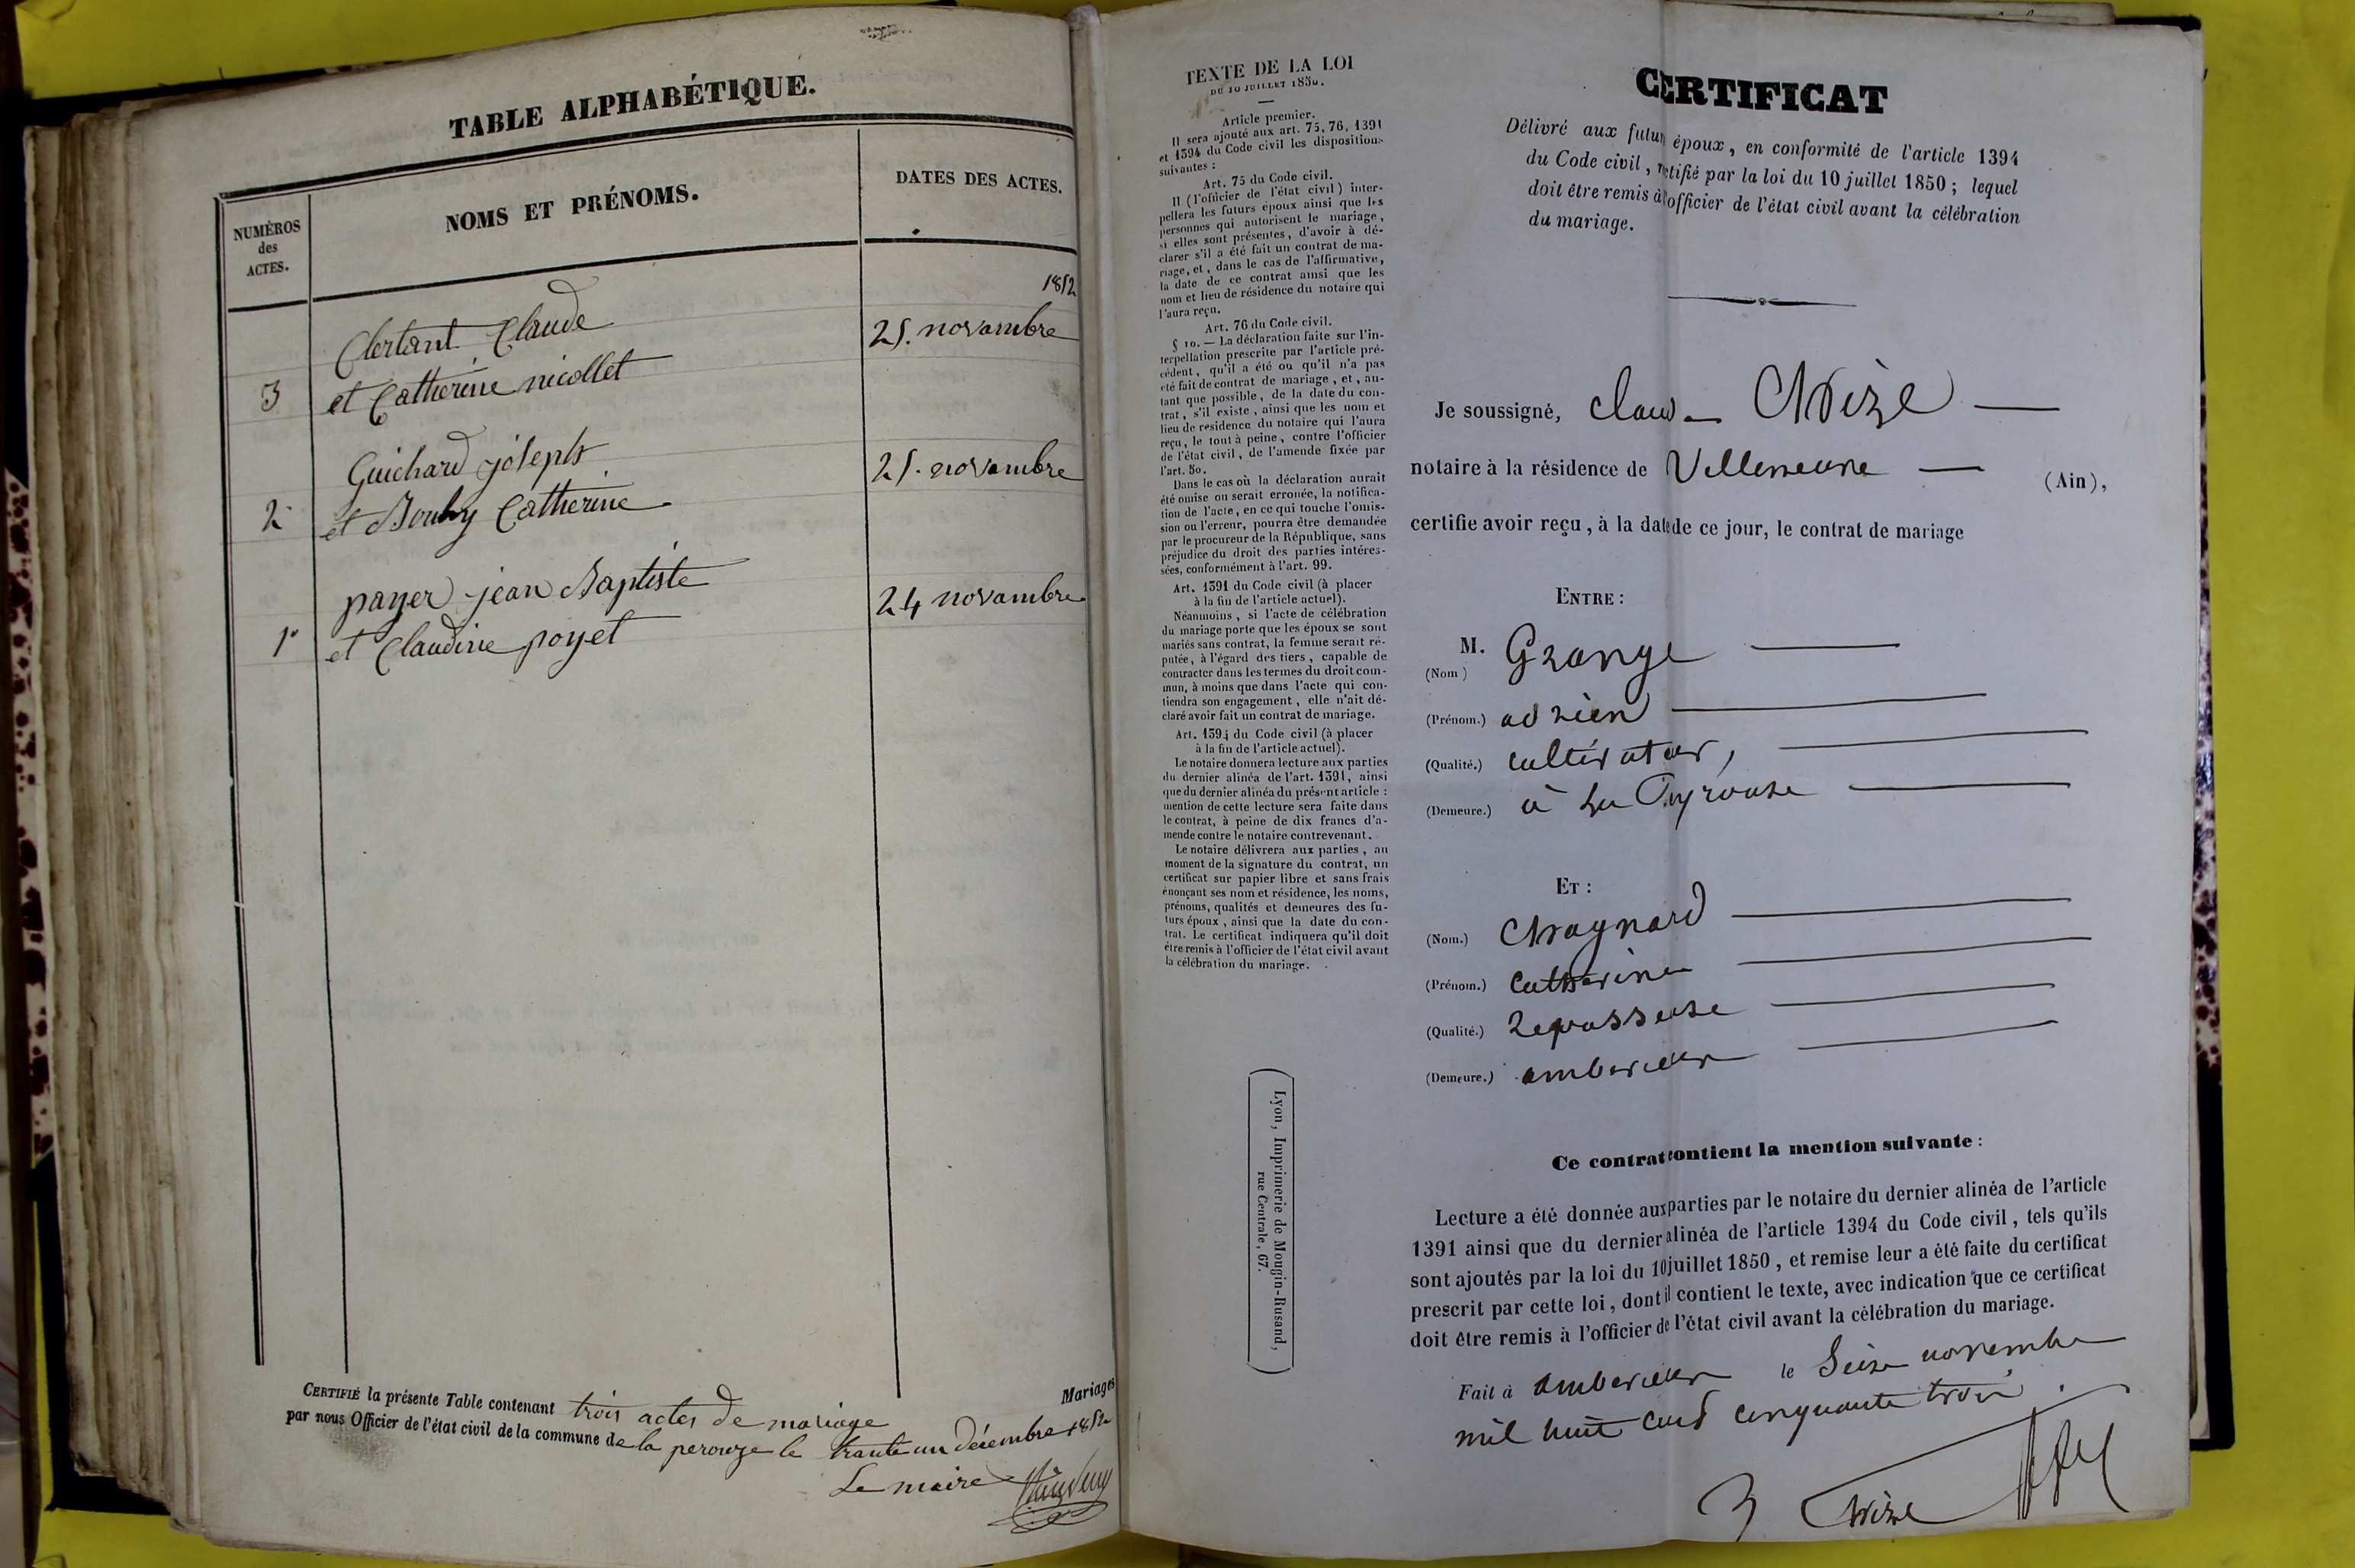 TABLE ALPHABÉTIQUE.
NUMÉROS
des
ACTES.
NOMS ET PRÉNOMS.
DATES DES ACTES.
1852
Clertant Claude
25. novambre
3 et Catherine nicollet
Guichard joseph
25. novambre
2 et Bouhy Catherine
payer jean Baptiste
24 novambre
1r et Claudine poyet
CERTIFIÉ la présente Table contenant trois actes de mariage
Mariages
par nous Officier de l'état civil de la commune de la perouze le trante un décembre 1852
Le maire
TEXTE DE LA LOI
DU 10 JUILLET 1850.
Article premier.
Il sera ajouté aux art. 75, 76, 1391
et 1394 du Code civil les dispositions
suivantes :
Art. 75 du Code civil.
Il (l'officier de l'état civil) inter-
pellera les futurs époux ainsi que les
personnes qui autorisent le mariage,
si elles sont présentes, d'avoir à dé-
clarer s'il a été fait un contrat de ma-
riage, et, dans le cas de l'affirmative,
la date de ce contrat ainsi que les
nom et lieu de résidence du notaire qui
l'aura reçu.
Art. 76 du Code civil.
§ 10. — La déclaration faite sur l'in-
terpellation prescrite par l'article pré-
cédent, qu'il a été ou qu'il n'a pas
été fait de contrat de mariage, et, au-
tant que possible, de la date du con-
trat, s'il existe, ainsi que les nom et
lieu de residence du notaire qui l'aura
reçu, le tout à peine, contre l'officier
de l'état civil, de l'amende fixée par
l'art. 50.
Dans le cas où la déclaration aurait
été omise ou serait erronée, la notifica-
tion de l'acte, en ce qui touche l'omis-
sion ou l'erreur, pourra être demandée
par le procureur de la République, sans
préjudice du droit des parties intéres-
sées, conformément à l'art. 99.
Art. 1391 du Code civil (à placer
à la fin de l'article actuel).
Néanmoins, si l'acte de célébration
du mariage porte que les époux se sont
mariés sans contrat, la femme serait ré-
putée, à l'égard des tiers, capable de
contracter dans les termes du droit com-
mun, à moins que dans l'acte qui con-
tiendra son engagement, elle n'ait dé-
claré avoir fait un contrat de mariage.
Art. 1394 du Code civil (à placer
à la fin de l'article actuel).
Le notaire donnera lecture aux parties
du dernier alinéa de l'art. 1391, ainsi
que du dernier alinéa du présent article :
mention de cette lecture sera faite dans
le contrat, à peine de dix francs d'a-
mende contre le notaire contrevenant.
Le notaire délivrera aux parties, au
moment de la signature du contrat, un
certificat sur papier libre et sans frais
énonçant ses nom et résidence, les noms,
prénoms, qualités et demeures des fu-
turs époux, ainsi que la date du con-
trat. Le certificat indiquera qu'il doit
être remis à l'officier de l'état civil avant
la célébration du mariage.
Lyon, Imprimerie de Mougin-Rusand,
rue Centrale, 67.
CERTIFICAT
Délivré aux futurs époux, en conformité de l'article 1394
du Code civil, rectifié par la loi du 10 juillet 1850 ; lequel
doit être remis à l'officier de l'état civil avant la célébration
du mariage.
Je soussigné, Claude Chrizé
notaire à la résidence de Villeneuve (Ain),
certifie avoir reçu, à la date de ce jour, le contrat de mariage
ENTRE :
M. Grange
(Nom)
(Prénom.) adrien
(Qualité.) cultivateur,
(Demeure.) à La Peyrouse
ET :
(Nom.) Chagnard
(Prénom.) Catherine
(Qualité.) repasseuse
(Demeure.) amberieux
Ce contrat contient la mention suivante :
Lecture a été donnée aux parties par le notaire du dernier alinéa de l'article
1391 ainsi que du dernier alinéa de l'article 1394 du Code civil, tels qu'ils
sont ajoutés par la loi du 10 juillet 1850, et remise leur a été faite du certificat
prescrit par cette loi, dont il contient le texte, avec indication que ce certificat
doit être remis à l'officier de l'état civil avant la célébration du mariage.
Fait à amberieux le Seize novembre
mil huit cent cinquante trois.